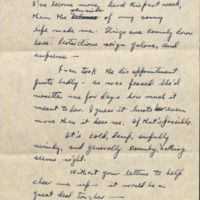 I've become more hard this past week,
than the remainder of my army
life made me. Things are crumby down
here. Restrictions reign galore, and
supreme —
Even took the disappointment
quite badly — as was peeved. She'd
written me for days how much it
meant to her. I guess it hurt her even
more than it does me. If that's possible.
It's cold, damp, awfully
windy, and generally crumby, nothing
seems right.
Without your letters to help
cheer me up — it would be a
great deal tougher —